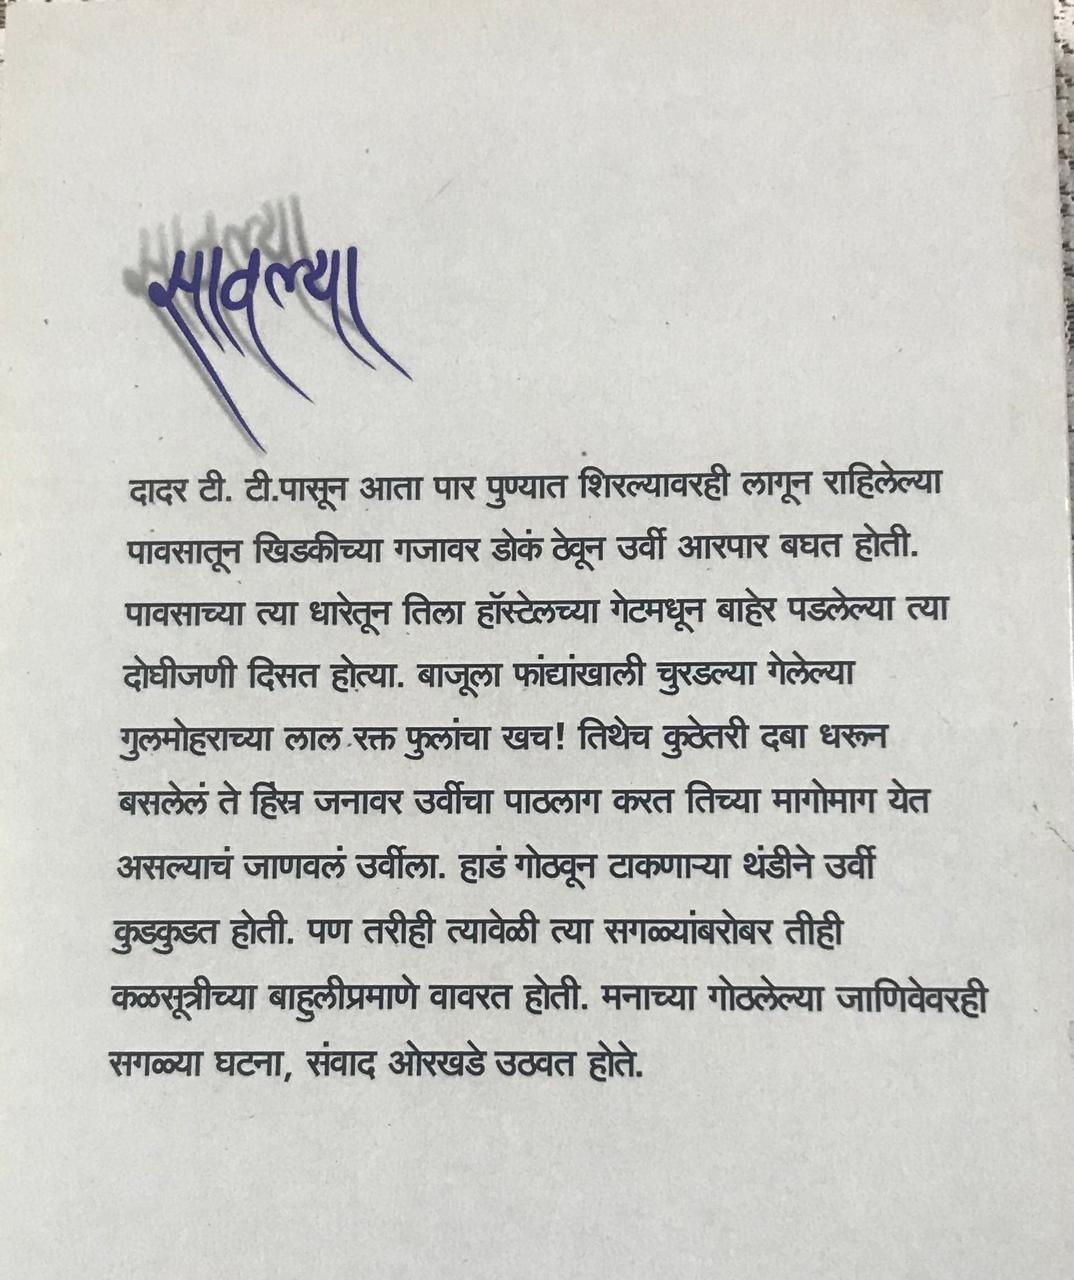 सावल्या
दादर टी. टी.पासून आता पार पुण्यात शिरल्यावरही लागून राहिलेल्या
पावसातून खिडकीच्या गजावर डोकं ठेवून उर्वी आरपार बघत होती.
पावसाच्या त्या धारेतून तिला हॉस्टेलच्या गेटमधून बाहेर पडलेल्या त्या
दोघीजणी दिसत होत्या. बाजूला फांद्यांखाली चुरडल्या गेलेल्या
गुलमोहराच्या लाल रक्त फुलांचा खच! तिथेच कुठेतरी दबा धरून
बसलेलं ते हिंस्र जनावर उर्वीचा पाठलाग करत तिच्या मागोमाग येत
असल्याचं जाणवलं उर्वीला. हाडं गोठवून टाकणाऱ्या थंडीने उर्वी
कुडकुडत होती. पण तरीही त्यावेळी त्या सगळ्यांबरोबर तीही
कळसूत्रीच्या बाहुलीप्रमाणे वावरत होती. मनाच्या गोठलेल्या जाणिवेवरही
सगळ्या घटना, संवाद ओरखडे उठवत होते.